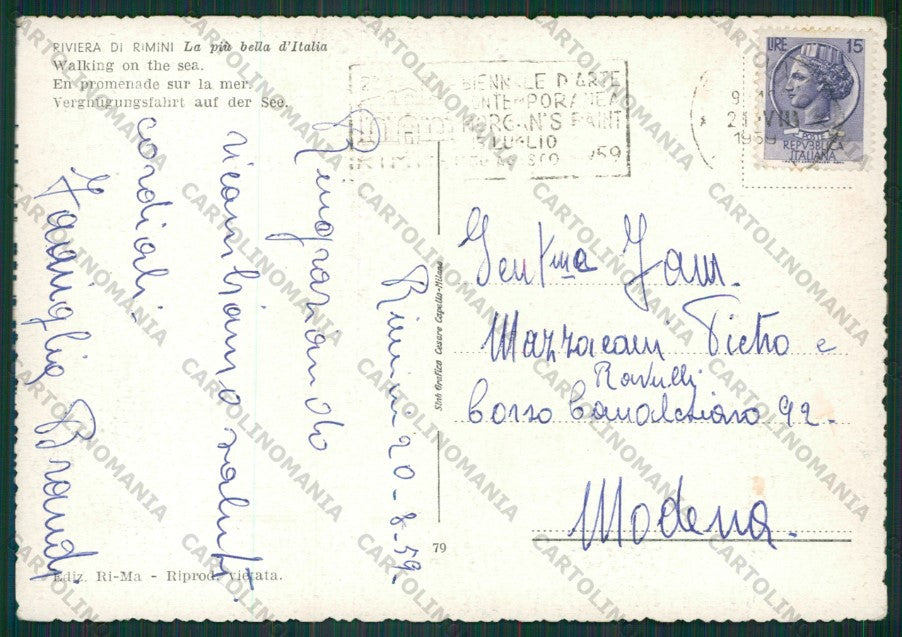 RIVIERA DI RIMINI La più bella d'Italia
Walking on the sea.
En promenade sur la mer.
Vergnügungsfahrt auf der See.
BIENNALE D'ARTE
CONTEMPORANEA
MORGAN'S PAINT
LUGLIO
RIMINI
LIRE 15
POSTE
REPVBBLICA
ITALIANA
Rimini 20-8-59.
Ringraziando
ricambiamo saluti
cordiali.
Famiglia Brandi
Stab Grafico Cesare Capello-Milano
Gent.ma Fam.
Mazzacani Pietro e
Ravulli
Corso Canalchiaro 92.
Modena.
79
Ediz. Ri-Ma - Riprod. vietata.
CARTOLINOMANIA